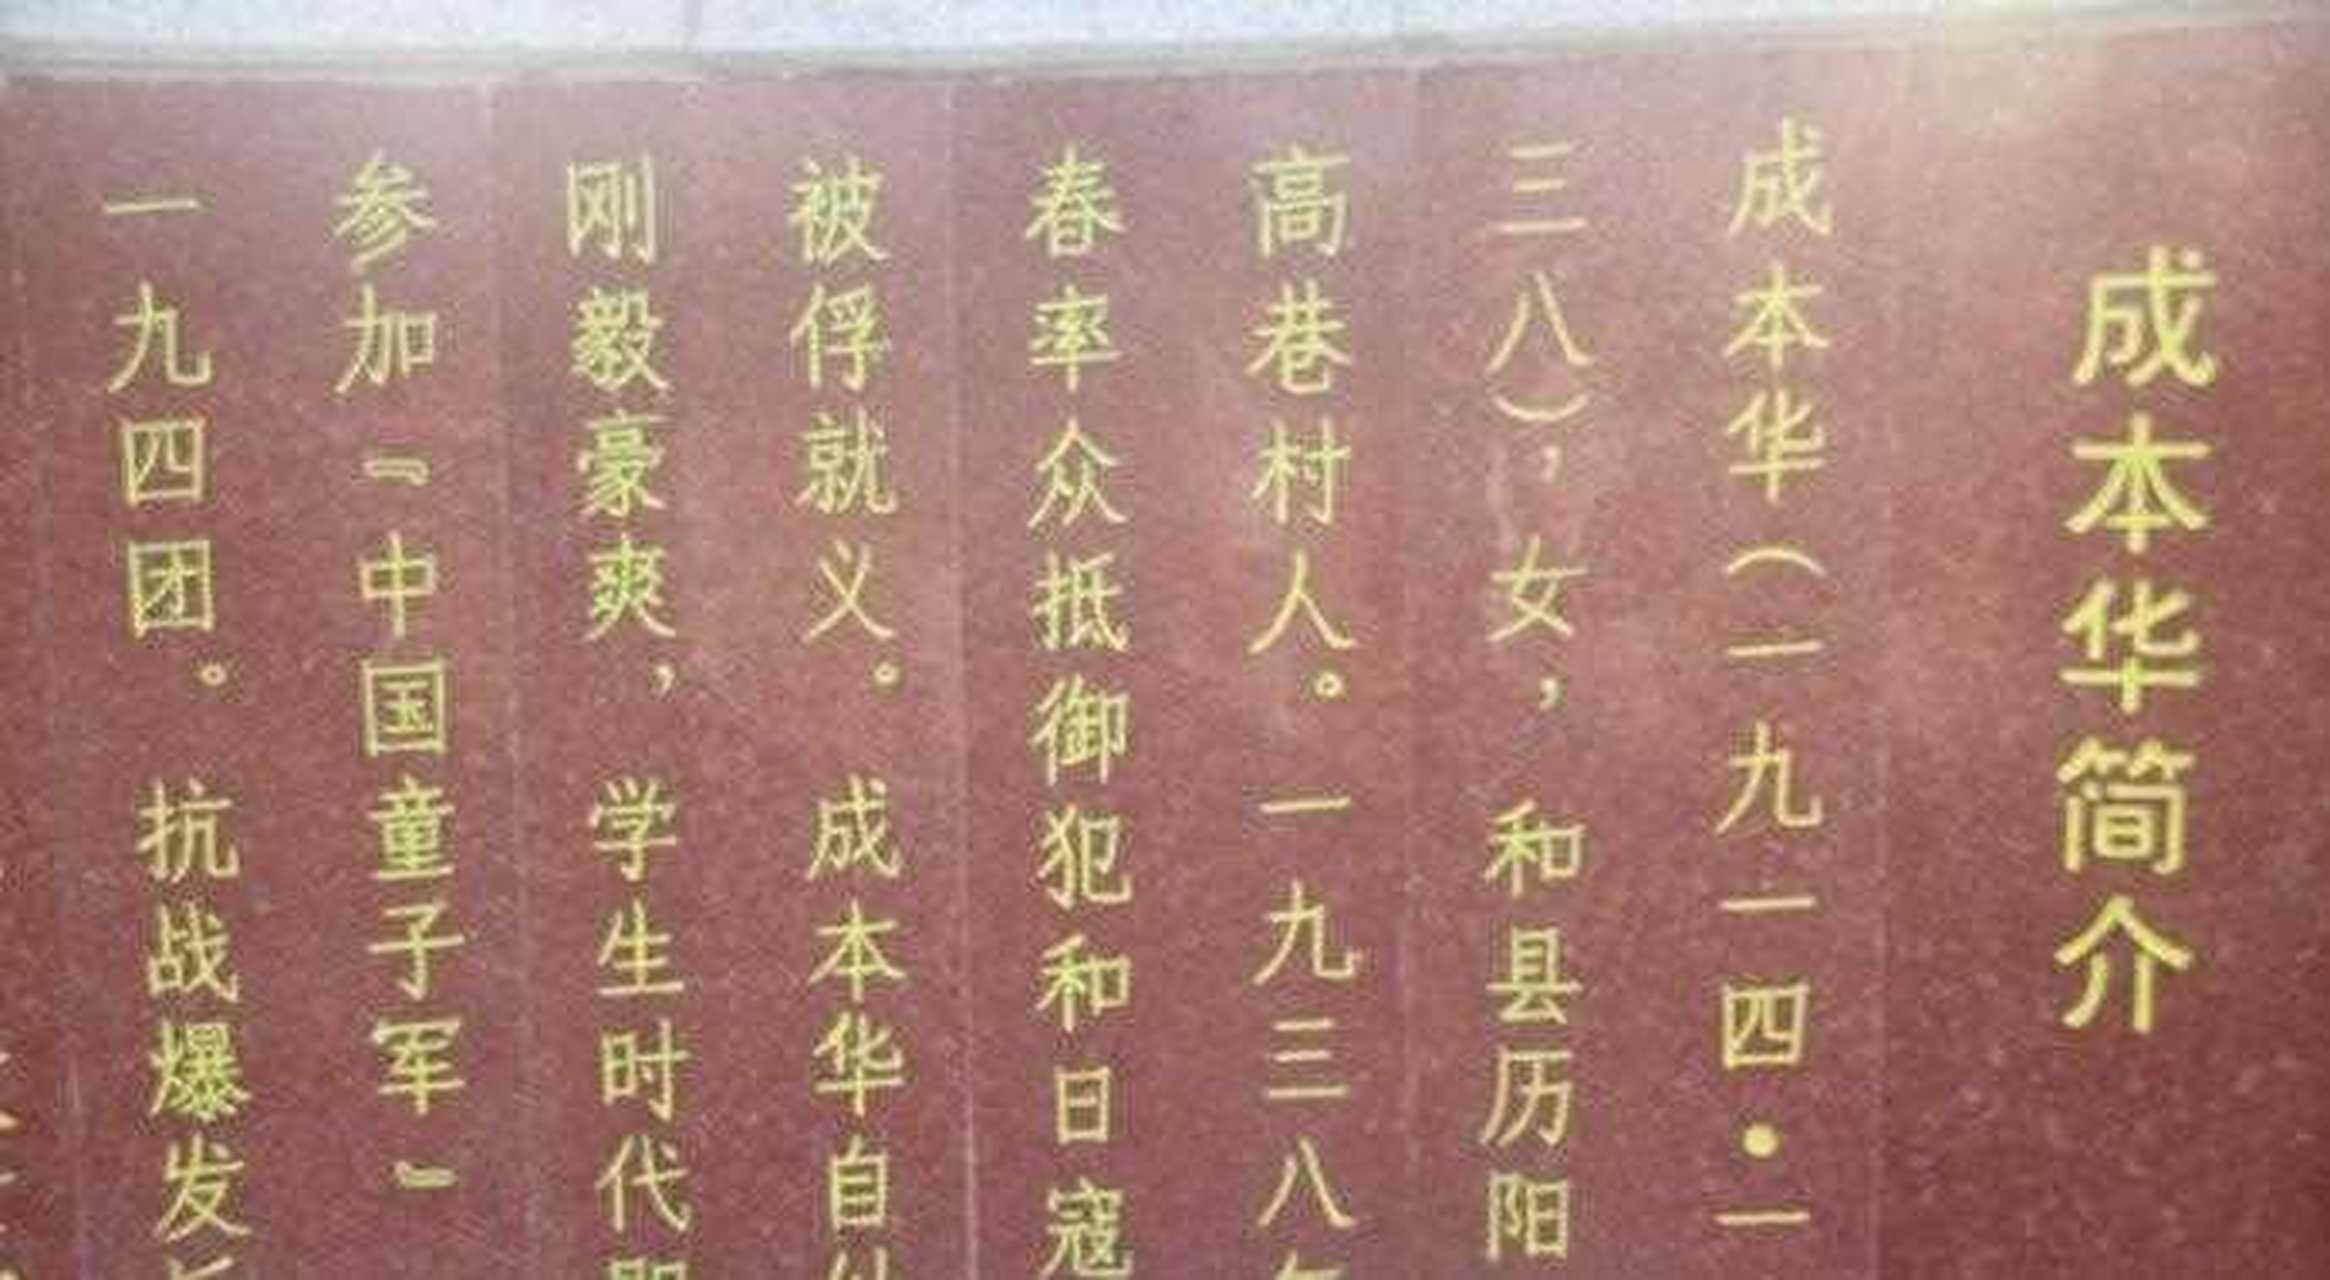 成本华简介
成本华(一九一四·一
三八),女,和县历阳
高巷村人。一九三八
春率众抵御犯和日寇
被俘就义。成本华自
刚毅豪爽,学生时代
参加『中国童子军』
一九四团。抗战爆发